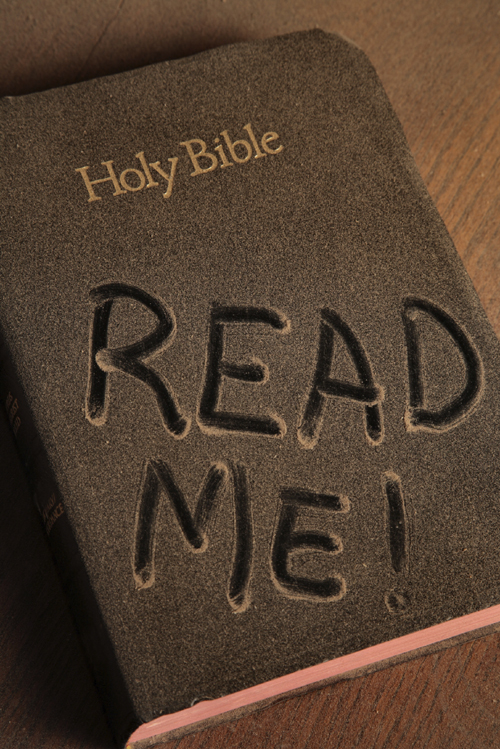 Holy Bible
READ
ME!